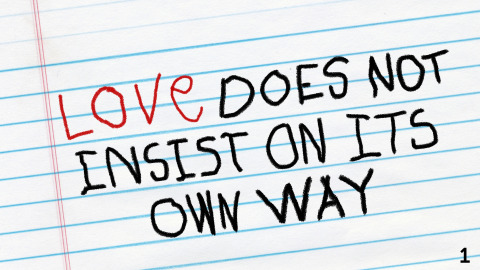 LOVe DOES NOT
INSIST ON ITS
OWN WAY
1